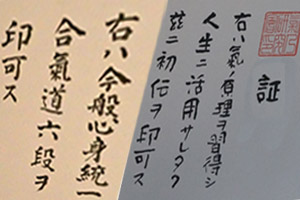 証
右ハ氣ノ原理ヲ習得シ
人生ニ活用サレタク
玆ニ初伝ヲ印可ス
右ハ今般心身統一
合氣道六段ヲ
印可ス